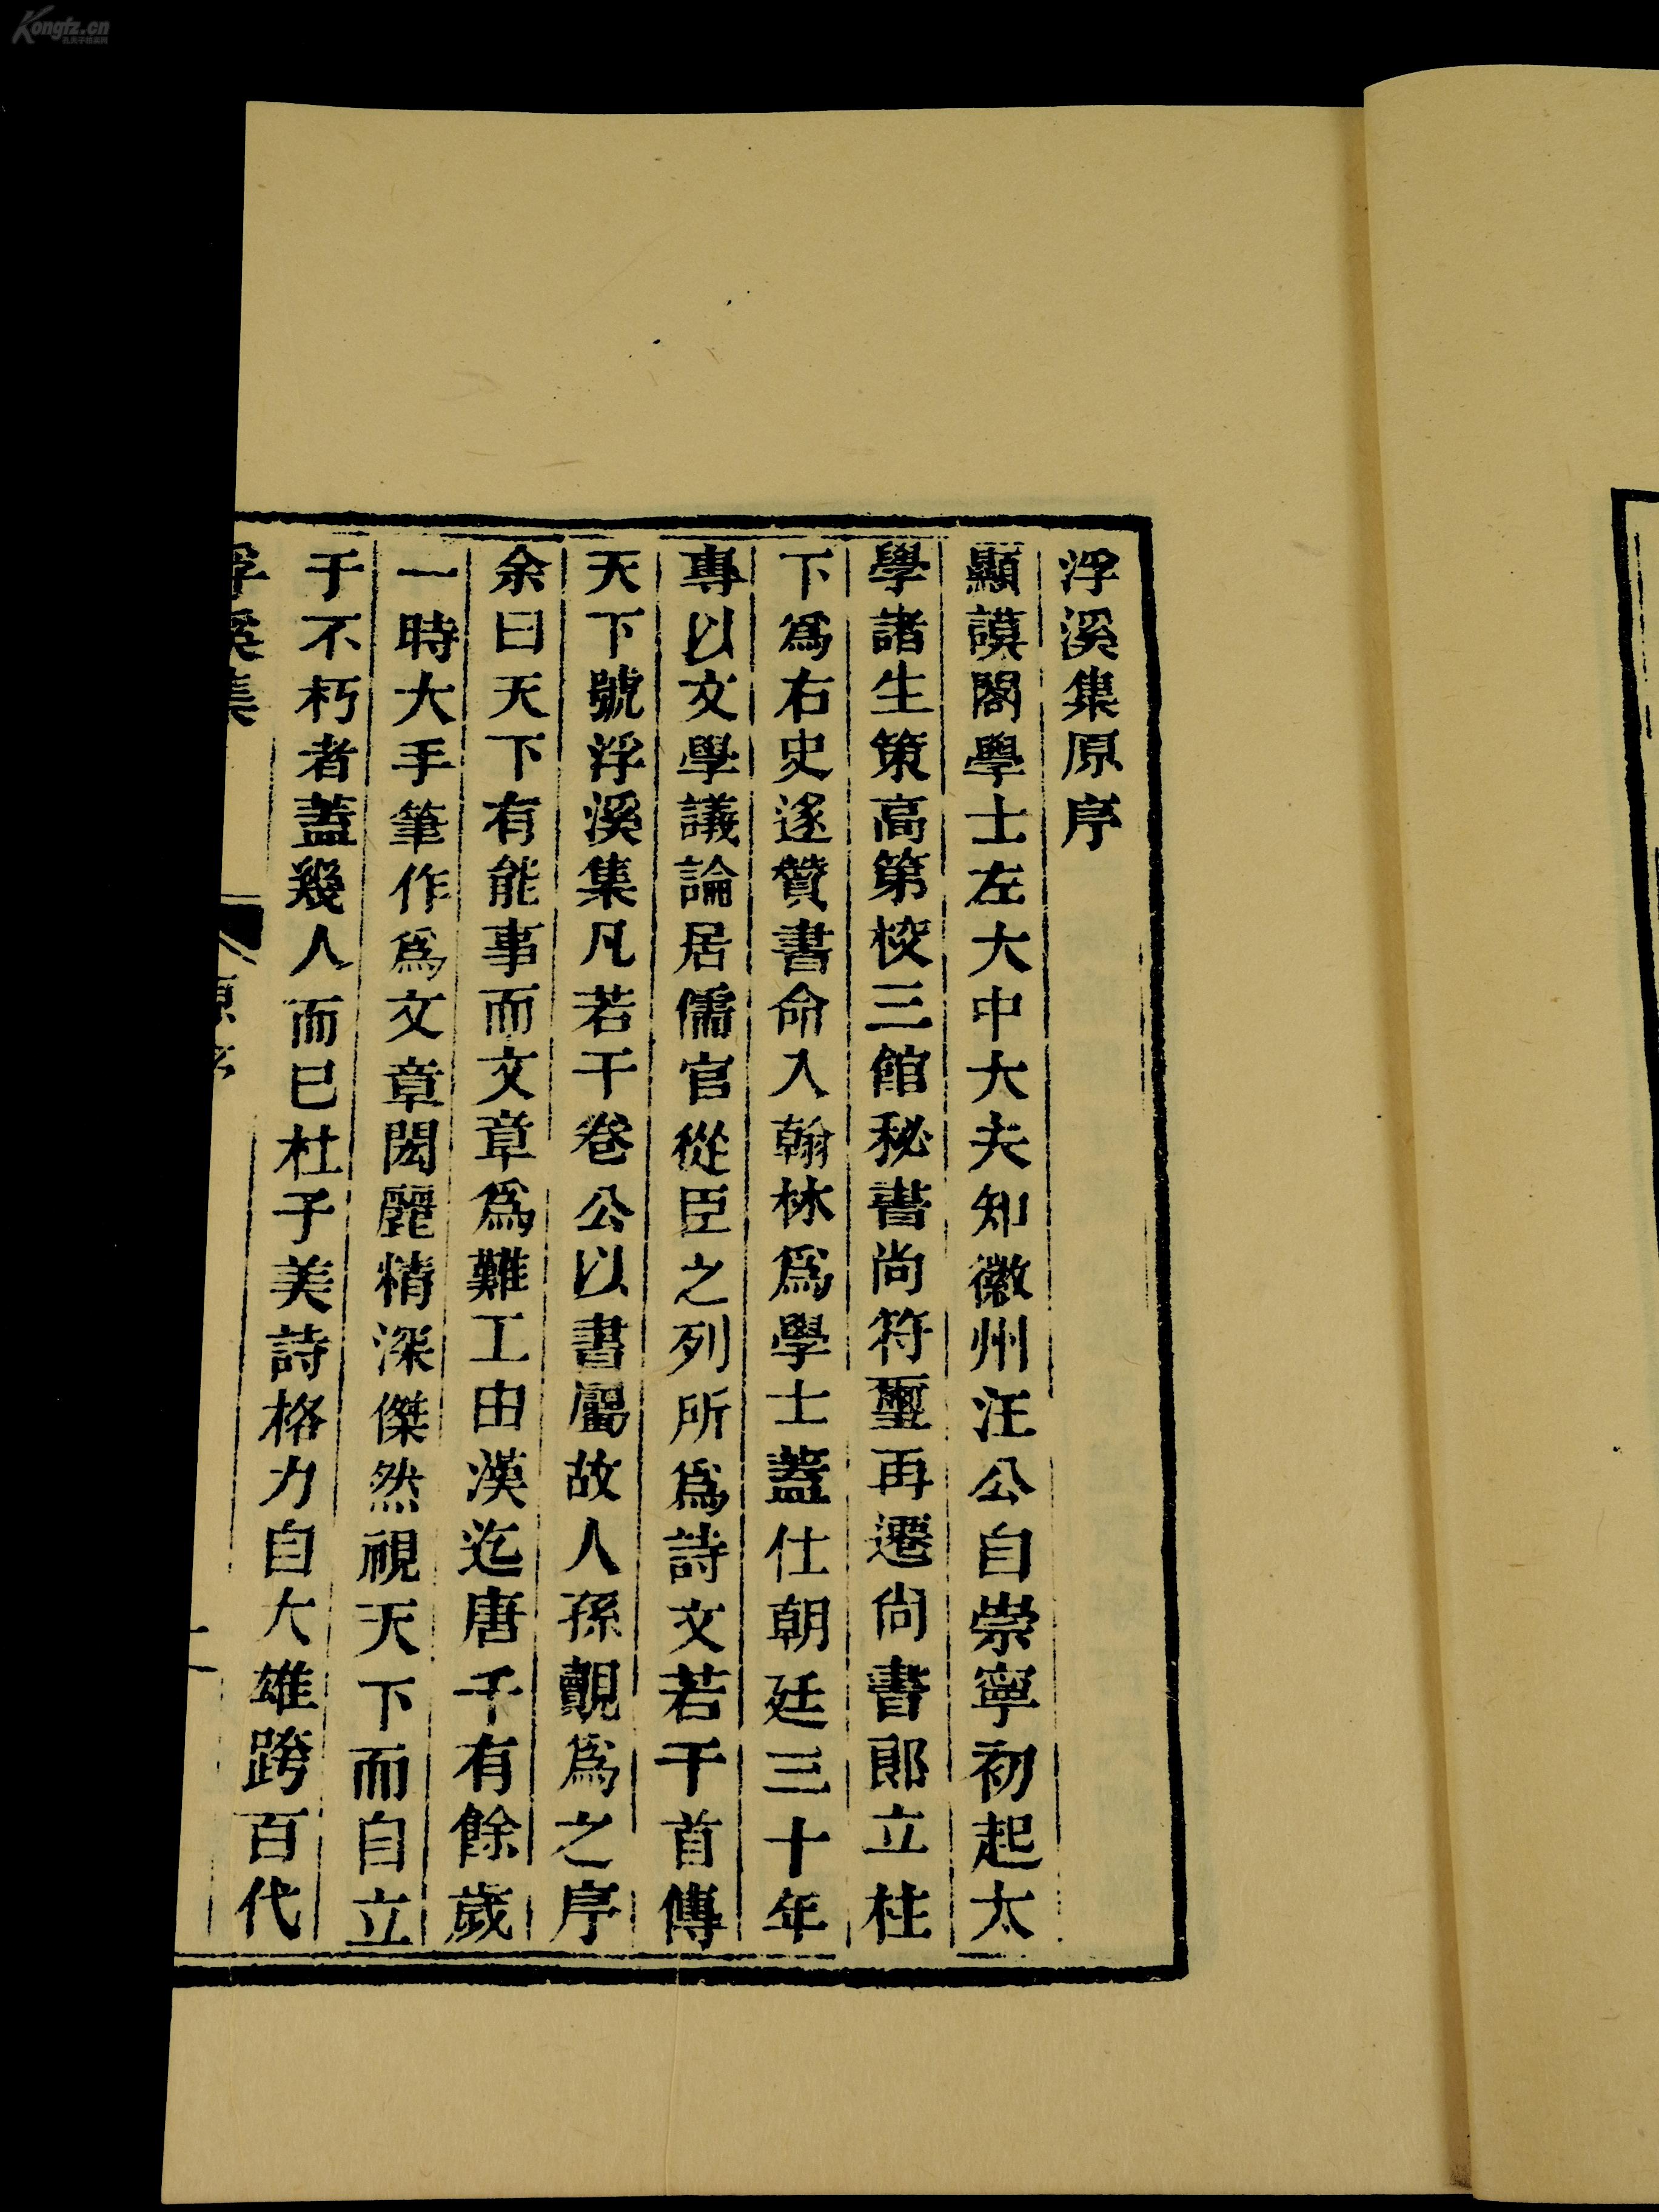 浮溪集原序
顯謨閣學士左大中大夫知徽州汪公自崇寧初起太
學諸生策高第校三館秘書尚符璽再遷尙書郎立柱
下爲右史遂贊書命入翰林爲學士蓋仕朝廷三十年
專以文學議論居儒官從臣之列所爲詩文若干首傳
天下號浮溪集凡若干卷公以書屬故人孫覿爲之序
余曰天下有能事而文章爲難工由漢迄唐千有餘歲
一時大手筆作爲文章閎麗精深傑然視天下而自立
于不朽者蓋幾人而已杜子美詩格力自大雄跨百代
浮溪集 原序 一
Kongfz.cn